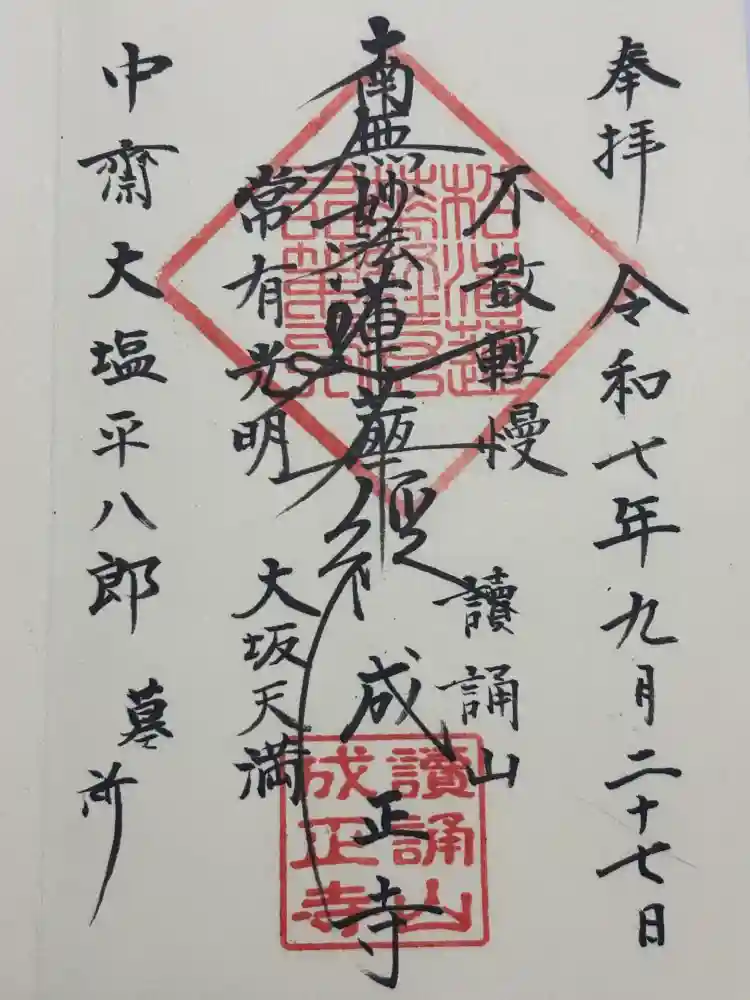 奉拝 令和七年九月二十七日
不敢輕慢
讀誦山
南無妙法蓮華經
成正寺
常有光明
大坂天満
中齋大塩平八郎
墓所
讀誦山
成正寺